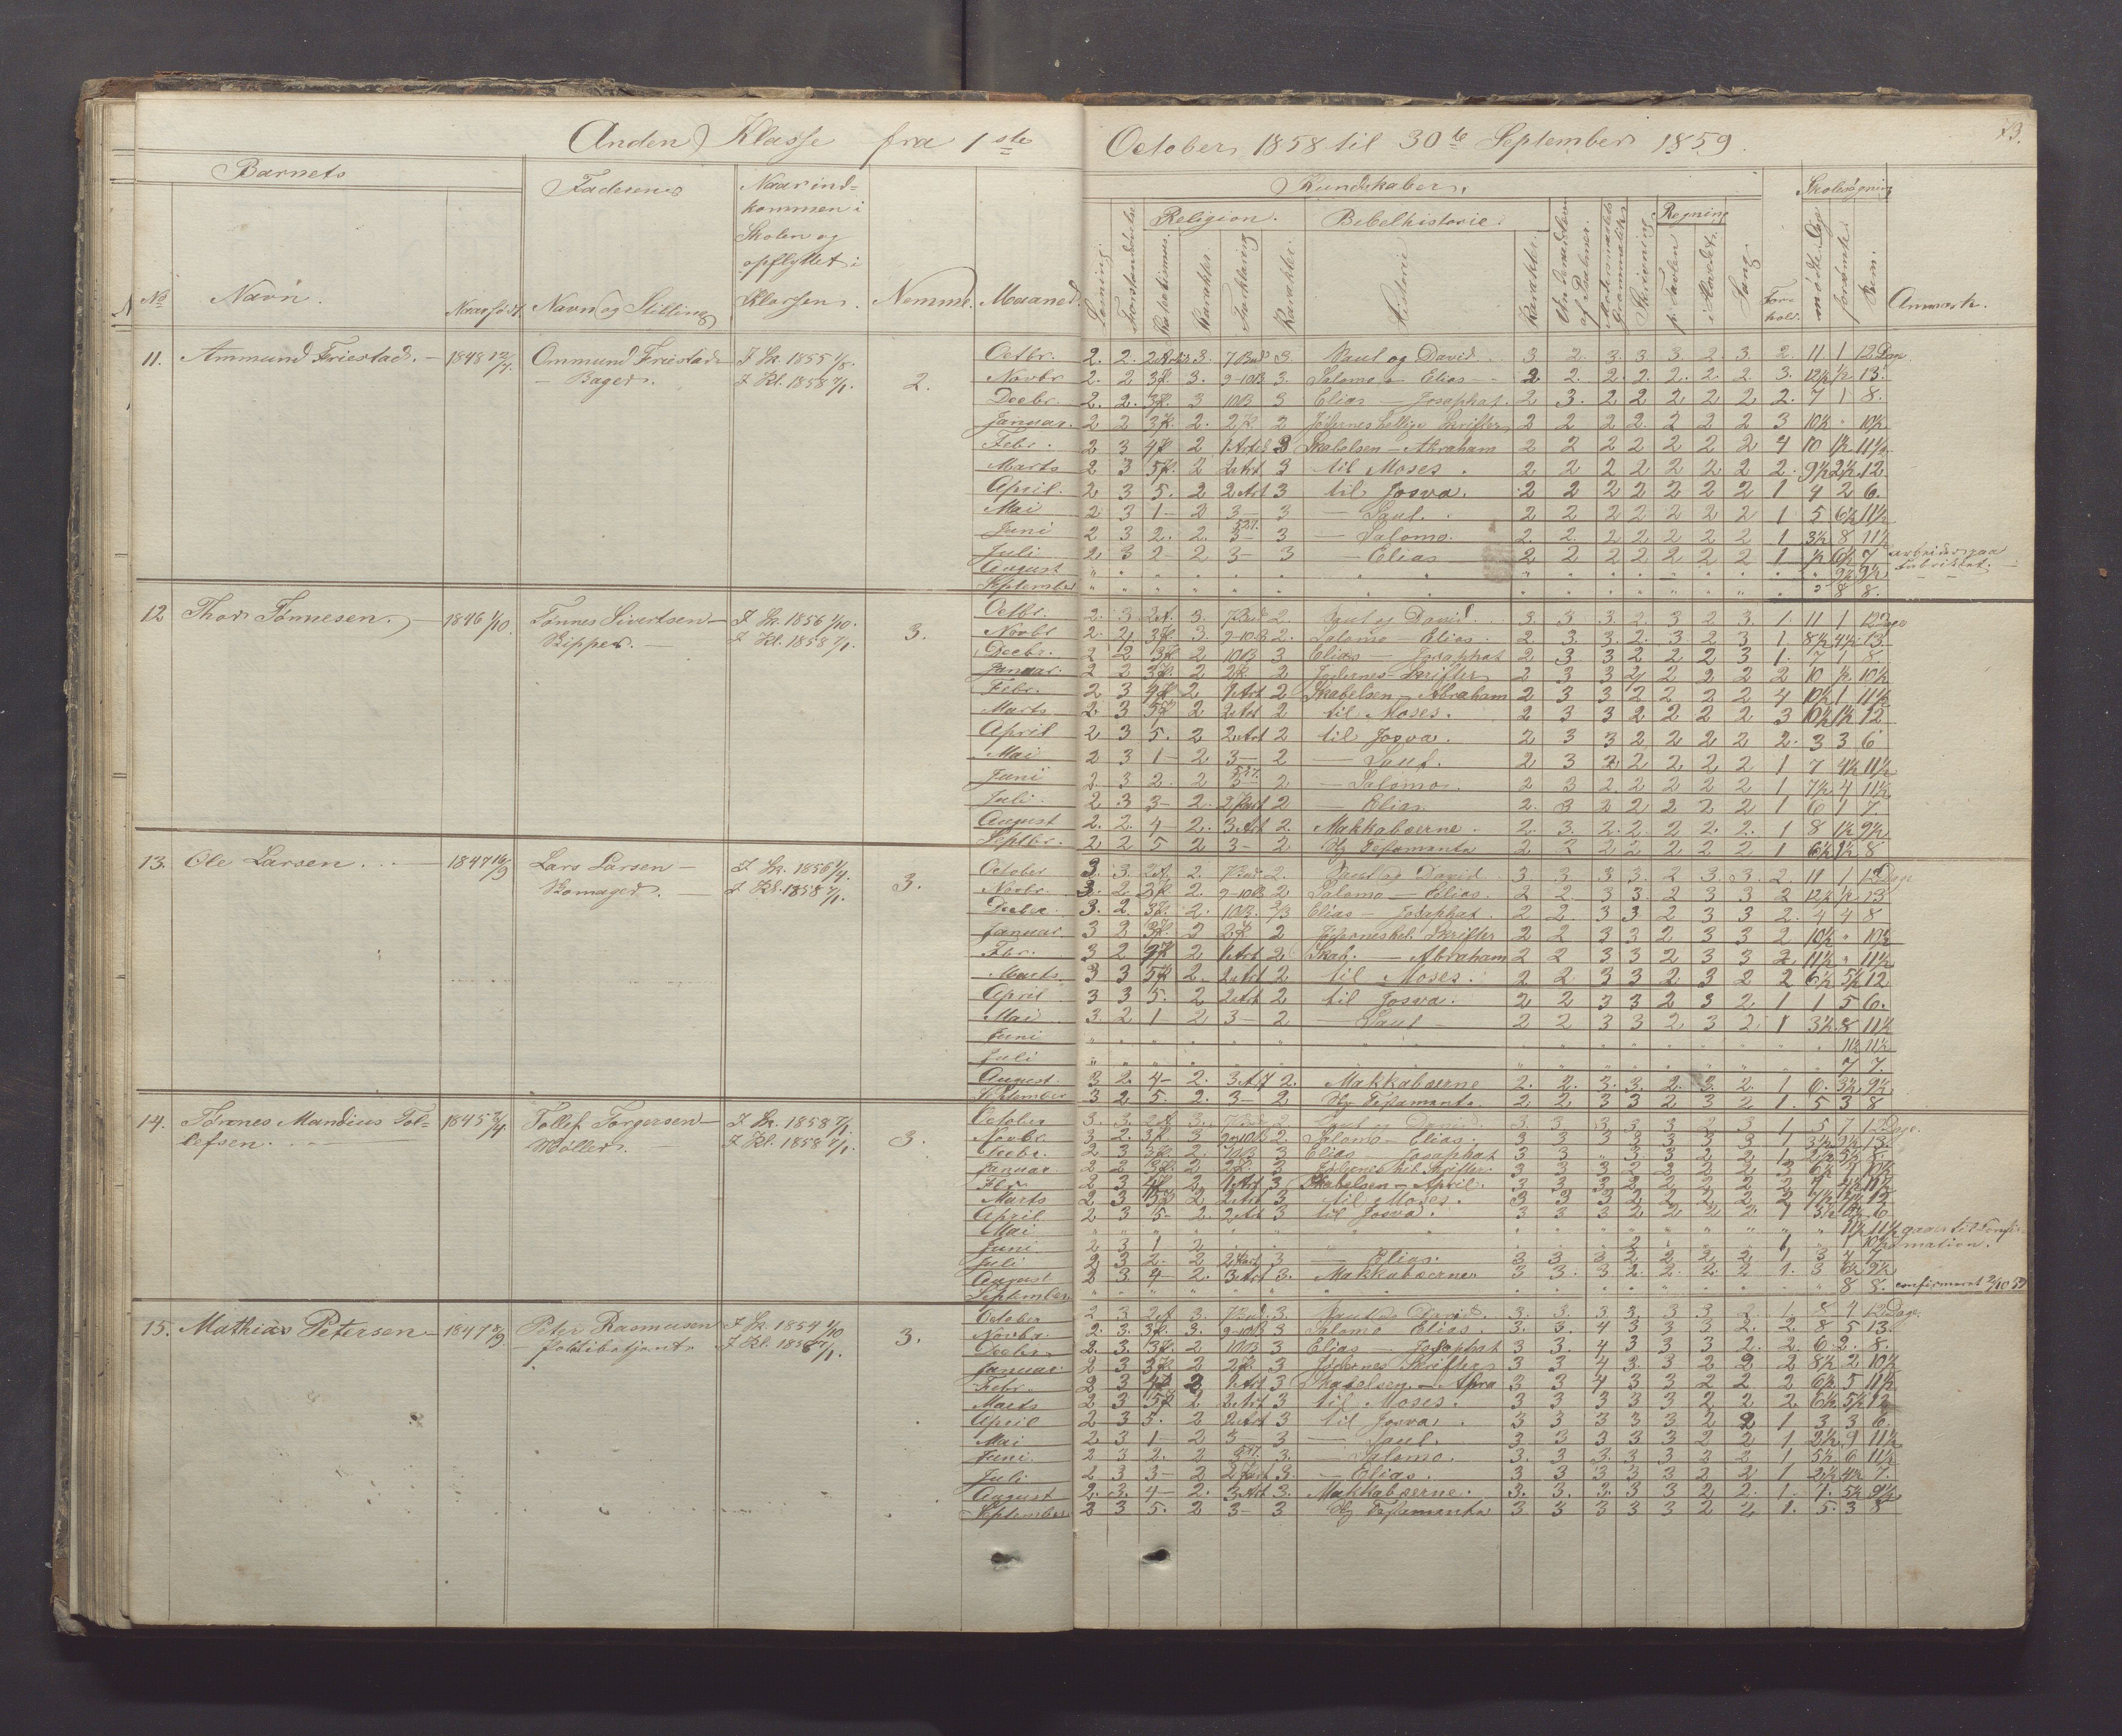 Anden Klasse fra 1ste October 1858 til 30te September 1859.
73.
Barnets
No
Navn.
Naar født
Faderens
Navn og Stilling
Naar ind=
kommen i
Skolen og
opflyttet i
Klassen.
Nemme.
Maaned.
Kundskaber.
Læsning
Religion.
Karakter.
Forklaring
Karakter.
Bibelhistorie.
Historie
Karakter.
Skrivning
Regning
p. Tavlen
i Hovedet.
Sang.
For=
hold.
Skolesøgning
mødte Dage
forsømte
Anmærk.
11. Ammund Friestad. — 1848 12/7. Ommund Friestad
— Bager.
I Sk. 1855 1/8.
I Kl. 1858 7/1.
2.
Octbr. 2. 2. 3. 7 Bud 3. Saul og David. 3 2. 3. 3. 3. 2. 3. 2. 11 1 12 Dage
Novbr 2. 2 3. 9-10B 3. Salomo — Elias 2 2. 2. 2. 2. 2. 2 3. 12½ ½ 13.
Decbr. 2. 2. 3 10B 3 Elias — Josaphat. 2 3. 2 2 2 2 2 2. 7 1 8.
Januar. 2 2 2. 2 Jødernes hellige Skrifter 2 2 2 2. 2 2 2 3 10½ " 10½
Febr. 2 3 2 1 Art 3 Skabelsen — Abraham 2 2 2 2 2 2 2 4 10 1½ 11½
Marts 2 3 2 2 Art 3 til Moses. 2 2 2 2 2 2 2 2. 9½ 2½ 12
April. 2 3 5. 2 2 Art 3 til Josva. 2 2 2 2 2 2 2 1 4 2 6.
Mai 2 3 1 — 2 3 — 3 — Saul. 2 2 2 2 2 2 2 1 5 6½ 11½
Juni 2 3 2. 2. 3 — 3 — Salomo. 2. 2. 2 2 2 2 2 1 3½ 8 11½
Juli 2 3 2 — 2 3 — 3 — Elias 2 2 2 2 2 2 2 1 ½ 6½ 7 arbeider paa
August 9½ 9½ Fabrikket.
September 8 8.
12 Thor Tønnesen. — 1846 1/10. Tønnes Sivertsen —
Skipper. —
I Sk. 1856 1/10.
I Kl. 1858 7/1.
3.
Octbr. 2. 3 3. 7 Bud 2 Saul og David. 3 3 3 2. 3 2 3. 1. 11 1 12 Dage
Novbr 2. 2 3. 9-10B 2. Salomo — Elias. 2 3. 3. 2. 3 2 3 1 8½ 4½ 13
Decbr. 2 2 2 10B 3 Elias — Josaphat 2 3 3 2 2 2 3 1. 7 1 8
Januar. 2 2 2 2 Jødernes Skrifter 2 3 3 2 2 2 2 2 10 ½ 10½
Febr. 2 3 2 1 Art 2 Skabelsen — Abraham 2 3 3 2 2 2 2 4 10½ 1 11½
Marts 2 3 2 2 Art 2 til Moses. 2 3 3 2 2 2 2 3 10½ 1½ 12
April 2 3 5. 2 2 Art 2 til Josva. 2 3 3 2 2 2 2 2. 3 3 6
Mai 2 3 1 — 2 3 — 2 — Saul. 2 3 2 2 2 2 2 1 7 4½ 11½
Juni 2. 3 2. 2 3 — 2 — Salomo. 2 3 2. 2 2 2 2 1 7½ 4 11½
Juli. 2 3 3 — 2. 2 Part 2 — Elias. 2. 3 2 2 2 2 2 1 6 1 7.
August 2. 2. 4 — 2. 3. Art 2. Makkabæerne. 2. 3. 2. 2. 2 2. 2. 1 8 1½ 9½
Septbr. 2 2 5 2 3 — 2 Ny Testamente 2 3 2 2 2 2 2 1 6½ 1½ 8
13. Ole Larsen. — 1847 16/9 Lars Larsen —
Skomager. —
I Sk. 1856 1/4.
I Kl. 1858 7/1.
3.
October 3. 3. 2. 7 Bud 2. Saul og David 3 3 3 3. 2 3 3. 2. 11 1 12 Dage
Novbr. 3. 2. 2. 9-10B 2 Salomo — Elias. 2 2. 3 3. 2 3 3 2 12½ ½ 13
Decbr. 3. 2. 2. 10B. 2/3 Elias — Josaphat. 2 2. 3 3. 2 3 3 2. 4 4 8
Januar. 3 2 2 2 Jødernes hel. Skrifter 2 2 3 3 2 3 3 2. 10½ " 10½
Fbr. 3 2 2 1 Art 2 Skab. — Abraham 2 2 3 3 2 3 3 2 11½ " 11½
Marts 3 3 2. 2 Art 2 til Moses. 2 2 3 3 2 3 2 2 6½ 5½ 12
April 3 3 5. 2 2 Art 2 til Josva. 2 2 3 3 2 3 2 1 1 5 6.
Mai 3 2 1 — 2 3 — 2 — Saul — 2 2 3 3 2 3 2 1 3½ 8 11½
Juni 11½ 11½
Juli 7 7.
August 3 2. 4 — 2. 3 Art 2. Makkabæerne 2. 2. 3. 3. 2. 3 2. 1 6. 3½ 9½
September 3 2 5. 2. 3 — 2 Ny Testamente 2 2 3 3 2 3 2 1. 5 3 8
14. Tønnes Mandius Tol=
lefsen. —
1845 2/4. Tollef Torgersen —
Møller. —
I Sk. 1858 7/1.
I Kl. 1858 7/1.
3.
October 3. 3. 3. 7 Bud 2. Saul og David. 3. 3. 3 3 3 2 3 1 5 7 12 Dage.
Novbr. 3 2. 3 9-10B 2. Salomo — Elias. 3 3 3 3 3 3 3 1 3½ 9½ 13.
Decbr. 2 3 2 10B 3 Elias — Josaphat 3 3 " 3. 3 2 2 1. 2½ 5½ 8.
Januar 2 2 2 3 Jødernes hel. Skrifter. 3 3 3 2 2 2 2 3 6½ 4 10½
Fbr. 2 3 2 1 Art 3 Skabelsen — April. 3 3 3 2 2 2 2 2
Marts 2 3 2 2 Art 3 til Moses. 3 3 3 2 2 2 2 2 12
April 2 3 5 — 2. 2 Art 3 til Josva. 3 3 3 2 2 2 2. 1 6
Mai 11½ 11½ gaaer til Confir=
Juni 2 3 1 2 mation.
Juli 2 3 2. 2 2 Part 3 — Elias. 3 3 3 2 2 2 2 1 3 4 7
August 2 3 4 — 2. 3 Art 3. Makkabæerne. 3 3. 3 2. 2. 2. 2 1. 3 6½ 9½
September 8 8. confirmeret 2/10 59
15. Mathias Petersen — 1847 8/9. Peter Rasmusen
— Politibetjent.
I Sk. 1854 1/10
I Kl. 1858 7/1.
3.
October 2 3 3. 7 Bud. 3. Saul og David. 3. 3. 3 3. 3 3 3 1. 8 4 12 Dage
Novbr. 2. 3. 3. 9-10B 3 Salomo Elias 3. 3. 4 3 3 3 2. 2. 8 5 13.
Decbr. 2. 3. 2 10B 3 Elias — Josaphat 3 3. 4 3 3 3 2. 2. 6. 2. 8.
Januar 2 3 2 3 Jødernes Skrifter 3 3 4 3. 3 2 2 2 8½ 2 10½
Febr. 2 3 2 1 Art 3 Skabelsen — Abra 3 3 4 3 3 2 2 2 6½ 5 11½
Marts 2 3 2 2 Art 3 til Moses. 3 3 3 3 3 2 2 2 6½ 5½ 12
April 2 3 5. 2 2 Art 3 til Josva. 3 3 3 3 3 2 2 1 3 3 6.
Mai 2 3 1 — 2 3 — 3 — Saul. 3 3 3 3 3 2 2 1 2½ 9 11½
Juni. 2 3 2. 2 3. — Salomo. 3. 3. 3. 3. 3 2 2 1 5½ 6 11½
Juli 2 3 3 — 2 2 Part 3. — Elias. 3 3 3 3 3 2 2 1 2½ 4½ 7.
August 2. 3. 4 — 2. 3 Art 3. Makkabæerne. 3. 3. 3. 3 3 2 2. 1. 4. 5½ 9½
September 2 3 5. 2 3 — 3 Ny Testamente 3 3 3 3 3 2 2 1. 5. 3 8